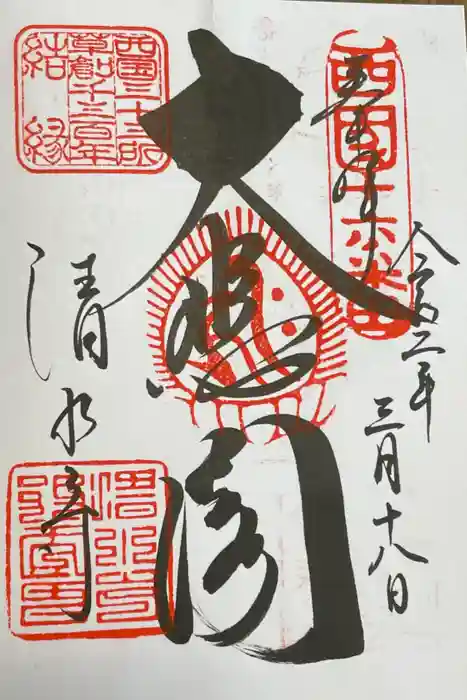 奉拝
西国十六番
令和二年
三月十八日
大悲閣
清水寺
西国三十三所
草創千三百年
結縁